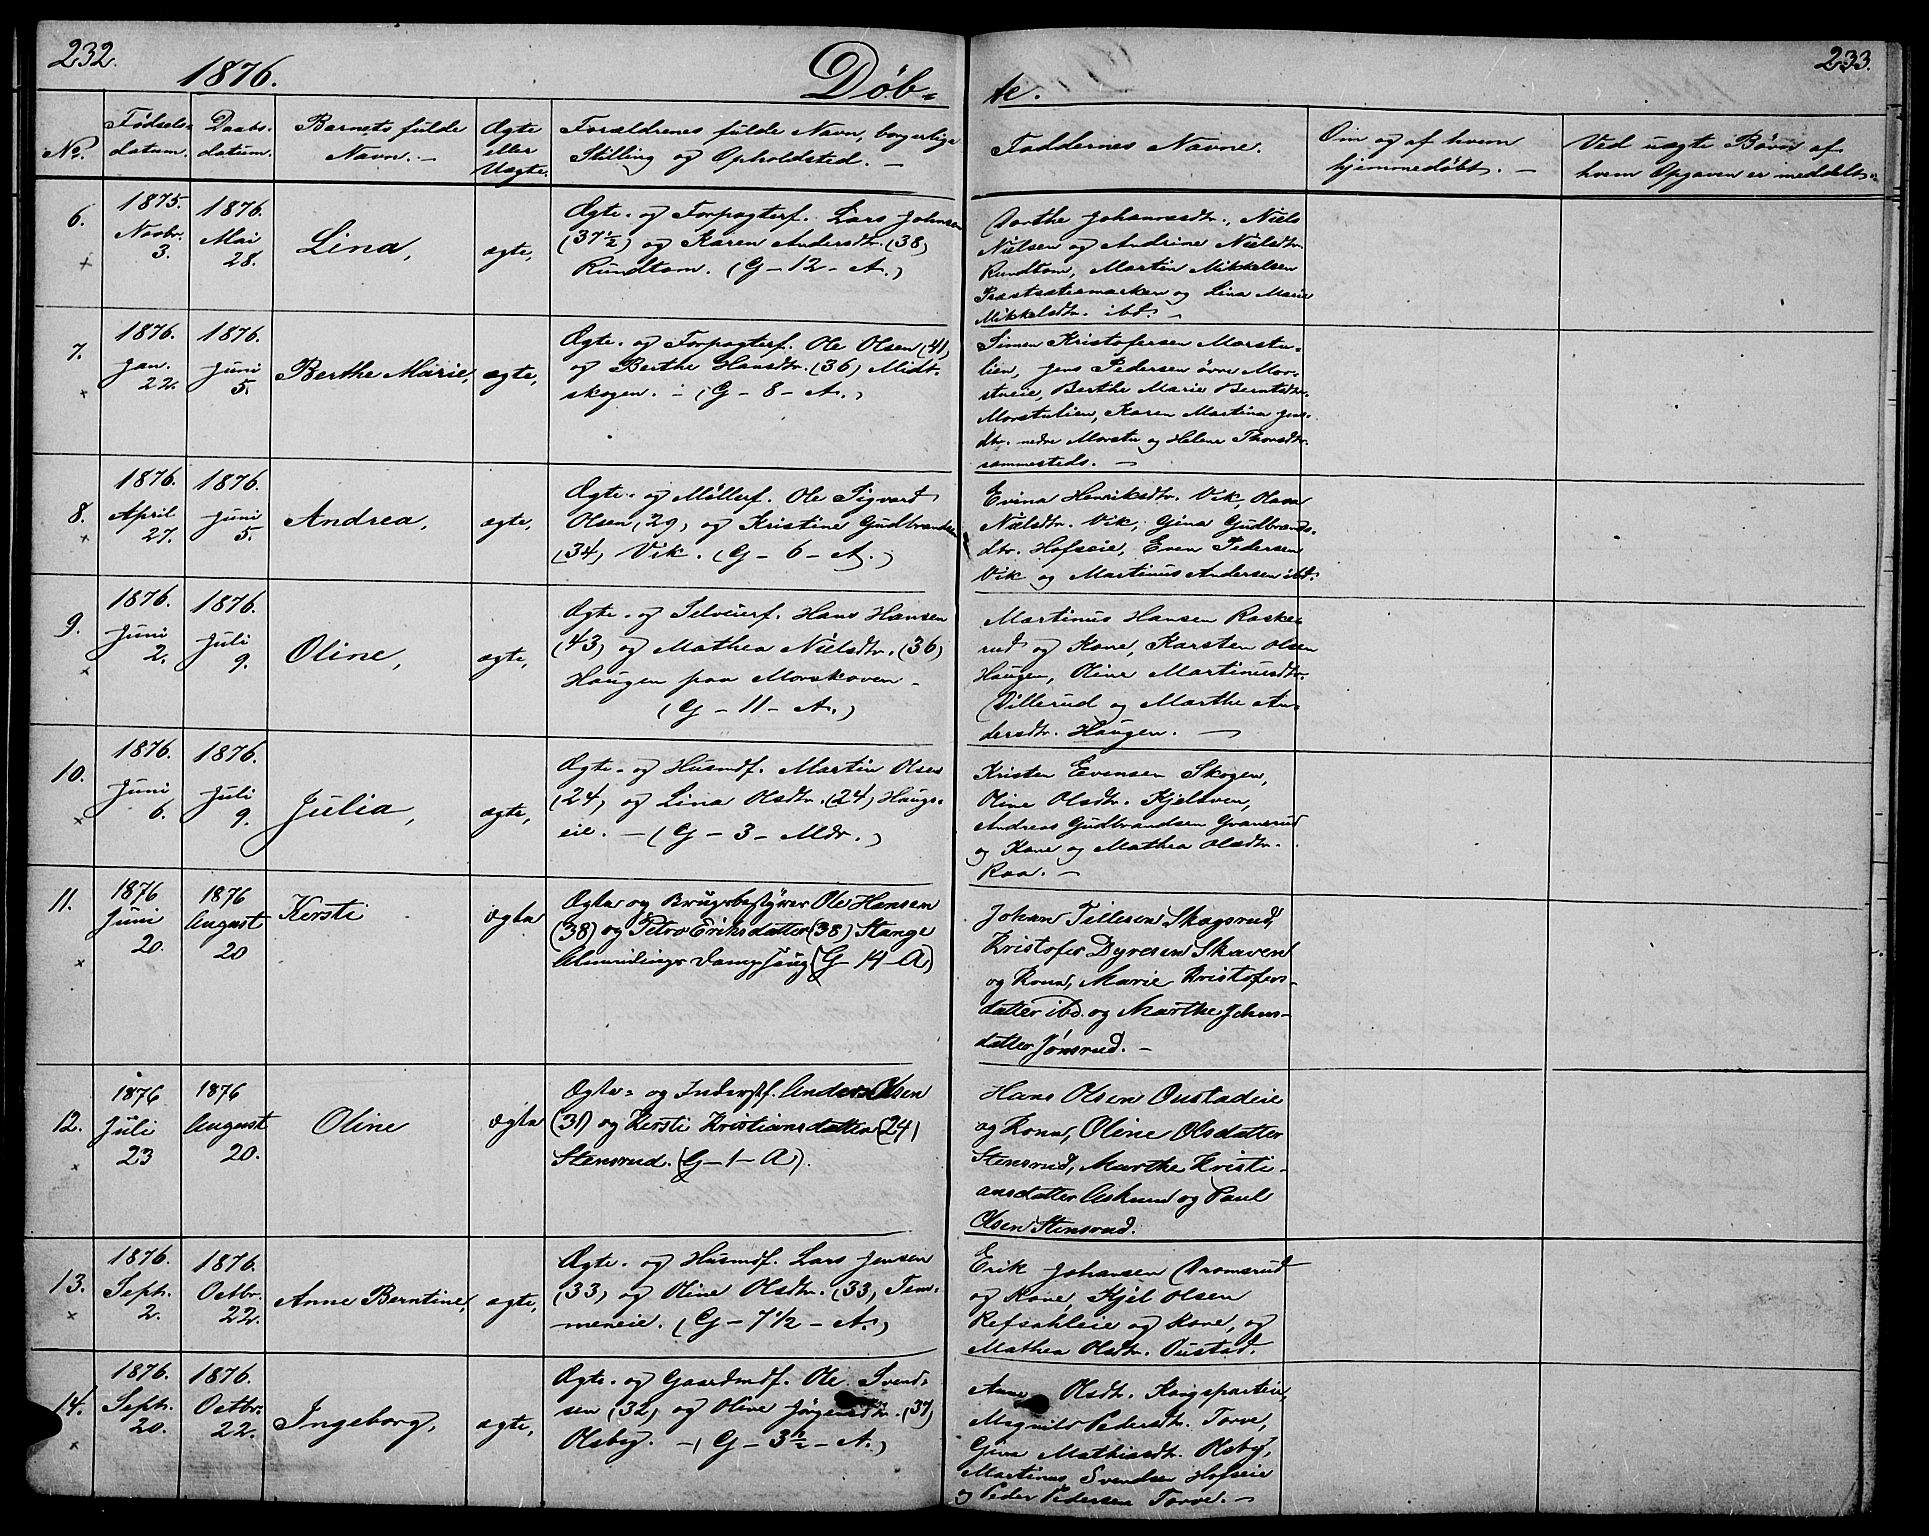 232.
1876.
Døb-
te.
233.
No.
Fødsels-
datum.
Daabs-
datum.
Barnets fulde
Navn. -
Ægte
eller
Uægte.
Forældrenes fulde Navn, borgerlige
Stilling og Opholdsted. -
Faddernes Navne.
Om og af hvem
hjemmedøbt. -
Ved uægte Børn af
hvem Opgaven er meddelt.
6.
1875.
Novbr.
3.
1876.
Mai
28.
Lina,
ægte,
Ægte- og Forpagterf. Lars Johnsen
(37½) og Karen Andersdtr. (38)
Rundtom. (G - 12 - A.)
Dorthe Johannesdtr., Niels
Nielsen og Andrine Nielsdtr.
Rundtom, Martin Mikkelsen
Præstsætermarken og Lina Marie
Mikkelsdtr. ibd. -
7.
1876.
Jan.
22.
1876.
Juni
5.
Berthe Marie,
ægte,
Ægte- og Forpagterf. Ole Olsen (41)
og Berthe Hansdtr. (36) Midt-
skogen. - (G - 8 - A.)
Simen Kristofersen Morstu-
lien, Jens Pedersen øvre Mor-
stueie, Berthe Marie Berntsdtr.
Morstulien, Karen Martina Jens-
dtr. nedre Morstu og Helene Thorsdtr.
sammesteds. -
8.
1876.
April
27.
1876.
Juni
5.
Andrea,
ægte,
Ægte- og Møllerf. Ole Sigvart
Olsen (29) og Kristine Gudbrandsd.
(34) Vik. (G - 6 - A.)
Evina Henriksdtr. Vik, Olava
Nielsdtr. Vik, Gina Gudbrands-
dtr. Hofseie, Even Pedersen
Vik og Martinus Andersen ibd.
9.
1876.
Juni
2.
1876.
Juli
9.
Oline,
ægte,
Ægte- og Selveierf. Hans Hansen
(43) og Mathea Nielsdtr. (36)
Haugen paa Morskoven -
(G - 11 - A.)
Martinus Hansen Raske-
rud og Kone, Karsten Olsen
Haugen, Oline Martinusdtr.
Dillerud og Marthe An-
dersdtr. Haugen. -
10.
1876.
Juni
6.
1876.
Juli
9.
Julia,
ægte,
Ægte- og Husmdf. Martin Olsen
(24) og Lina Olsdtr. (24) Haugs-
eie. - (G - 3 - Mdr.)
Kristen Evensen Skogen,
Oline Olsdtr. Kjelsven,
Andreas Gudbrandsen Granerud
og Kone og Mathea Olsdtr.
Raa. -
11.
1876
Juni
20.
1876
August
20
Kersti
ægte
Ægte og Brugsbestyrer Ole Hansen
(38) og Petra Eriksdatter (38) Stange
Almindings Dampsaug (G - 14 - A)
Johan Tillesen Skogsrud,
Kristofer Dyresen Skaven
og Kone, Marie Kristofers-
datter ibd. og Marthe Johns-
datter Jønsrud. -
12.
1876
Juli
23
1876
August
20.
Oline
ægte
Ægte- og Inderstf. Anders Olsen
(31) og Kersti Kristiansdatter (24)
Stensrud. (G - 1 - A).
Hans Olsen Oustadeie
og Kone, Oline Olsdatter
Stensrud, Marthe Kristi-
ansdatter Askerud og Paul
Olsen Stensrud.
13.
1876.
Septr.
2.
1876.
Octbr.
22.
Anne Berntine,
ægte,
Ægte- og Husmdf. Lars Jensen
(33) og Oline Olsdtr. (33) Tem-
meneie. (G - 7½ - A.)
Erik Johansen Dromsrud
og Kone, Kjel Olsen
Refsahleie og Kone, og
Mathea Olsdtr. Oustad.
14.
1876.
Septr.
20.
1876.
Octbr.
22.
Ingeborg,
ægte,
Ægte- og Gaardmdf. Ole Svend-
sen (32) og Oline Jørgensdtr. (37)
Olsby. - (G - 3½ - A.)
Anne Olsdtr. Kongsparteie,
Magnild Pedersdtr. Torve,
Gina Mathiasdtr. Olsby,
Martinus Svendsen Hofseie
og Peder Pedersen Torve. -